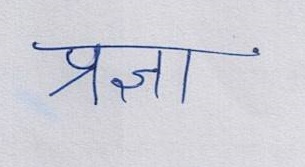 प्रज्ञा